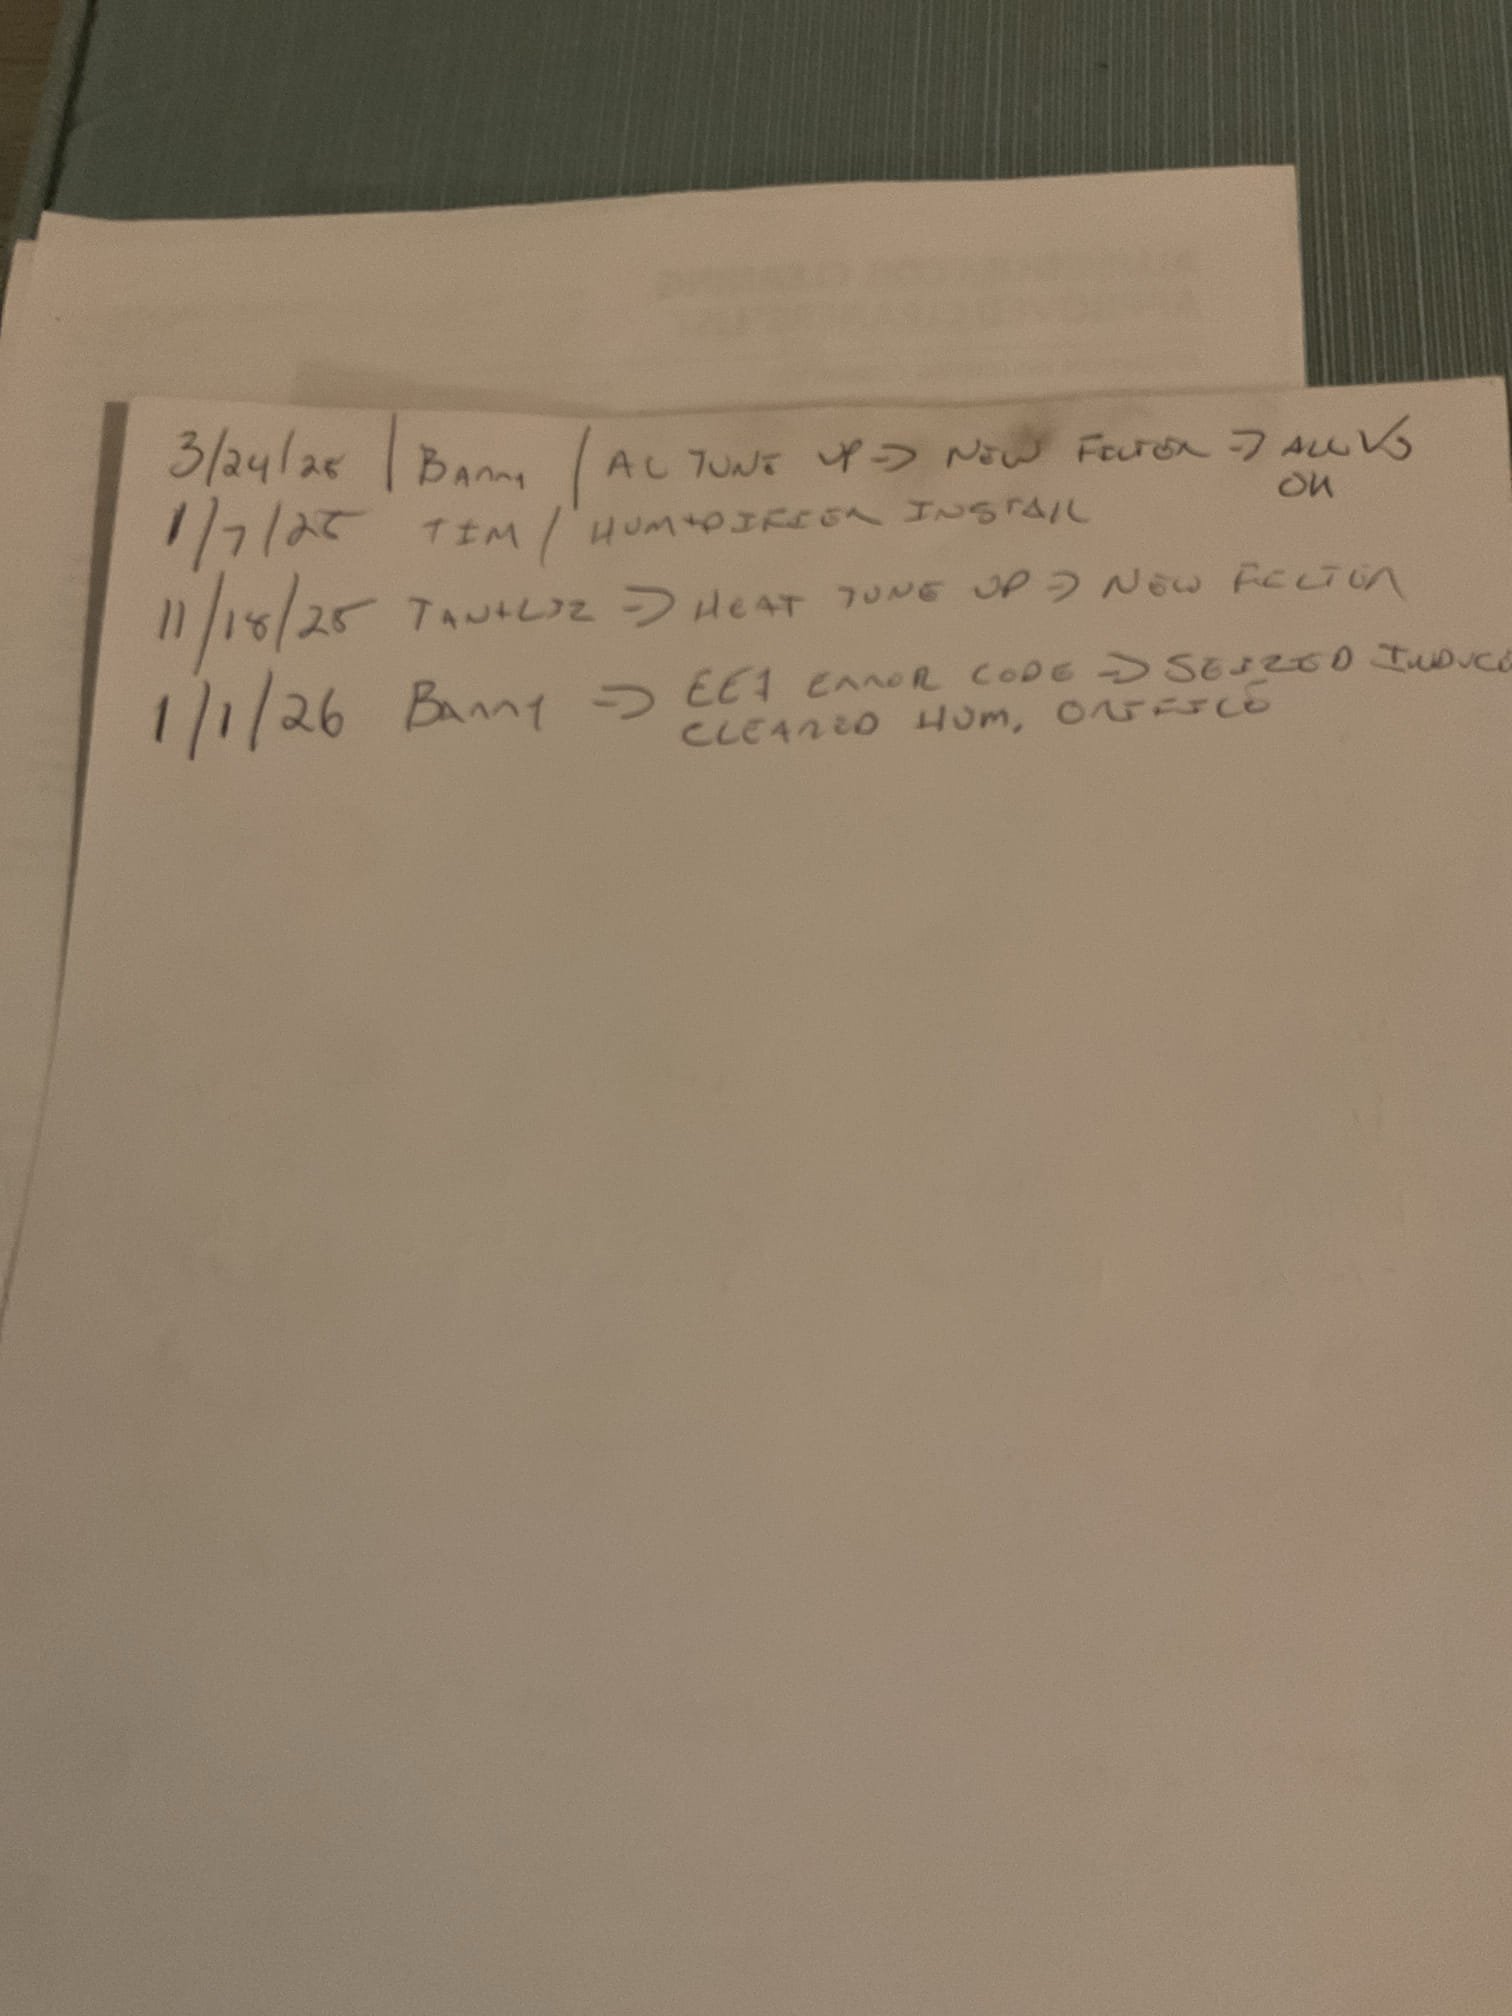 3/24/25 | Barry / AC TUNE UP => NEW FILTER => ALL √S
OK
1/7/25 TIM / HUMIDIFIER INSTALL
11/18/25 => HEAT TUNE UP => NEW FILTER
1/1/26 Barry => EE1 ERROR CODE => SEIZED INDUCE
CLEARED HUM. ORIFICE